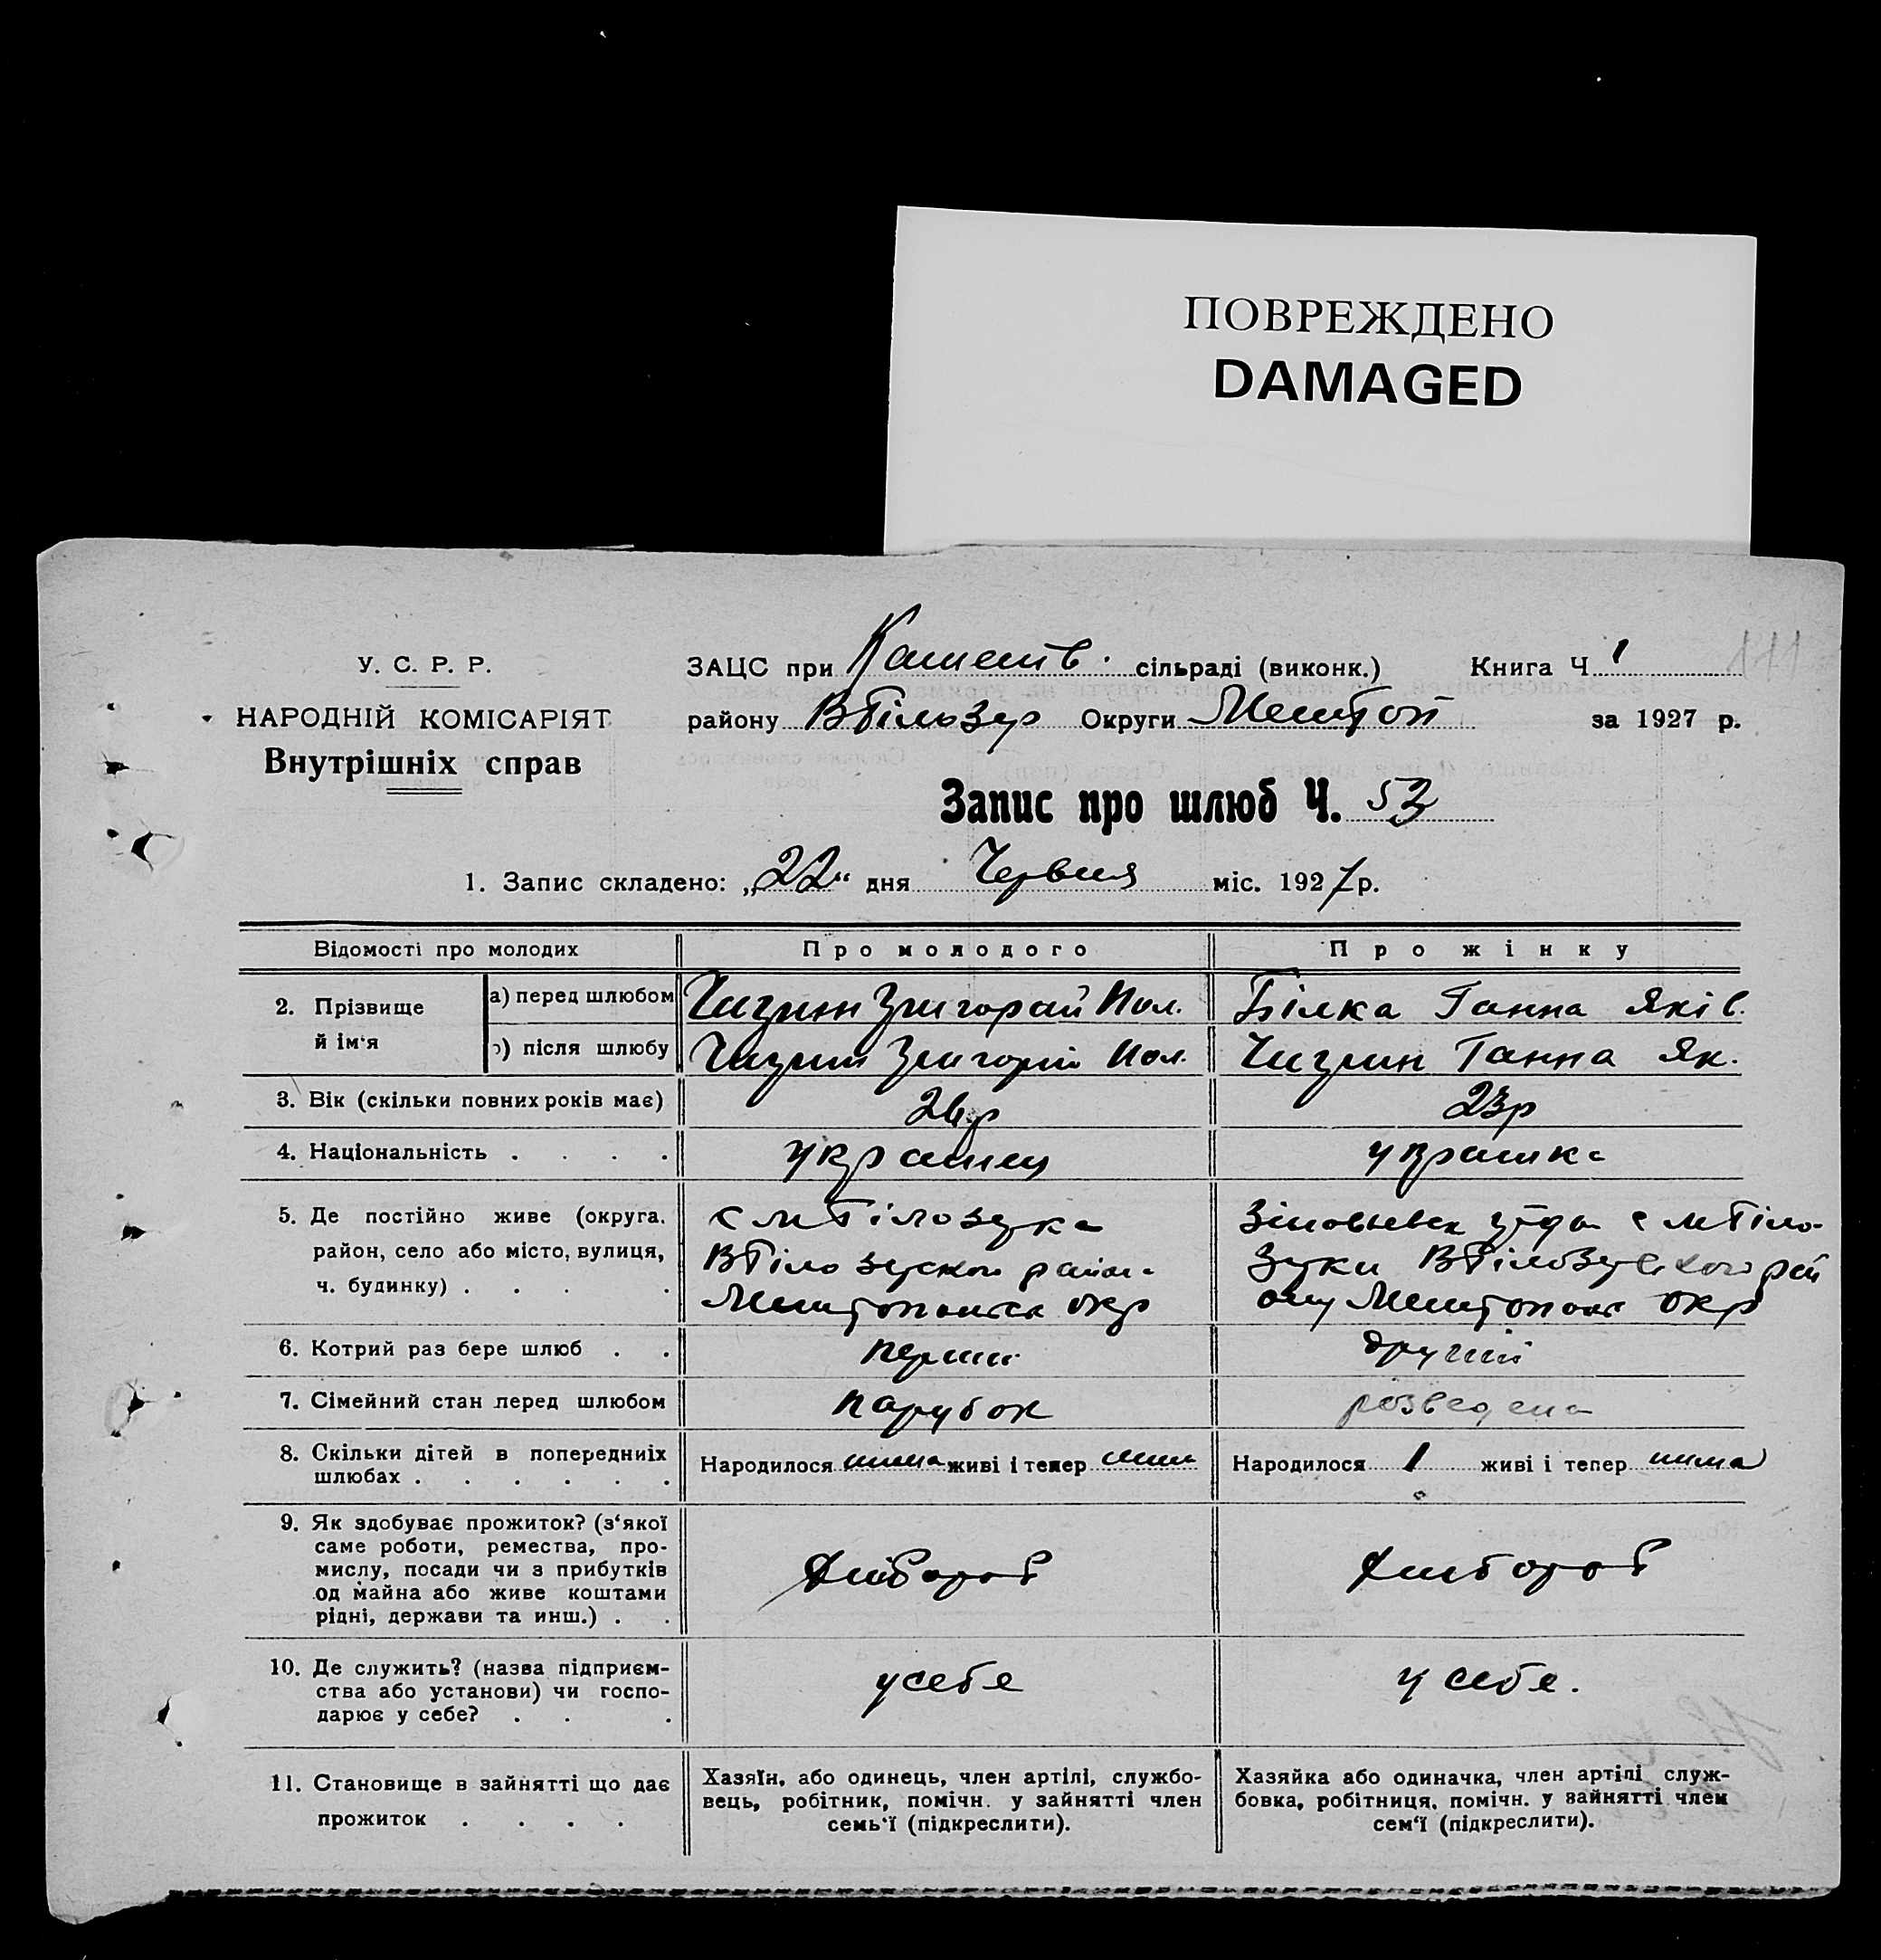 ПОВРЕЖДЕНО
DAMAGED
У. С. Р. Р.
НАРОДНІЙ КОМІСАРІЯТ
Внутрішніх справ
ЗАЦС при сільраді (виконк.) Книга Ч 1
району ВБілозер Округи Мелітоп за 1927 р.
Запис про шлюб Ч. 53
1. Запис складено: „22“ дня Червня міс. 1927 р.
Відомості про молодих Про молодого Про жінку
2. Прізвище й ім‘я
а) перед шлюбом Григорий Пол. Білка Ганна Яків.
б) після шлюбу Григорій Пол. Ганна Як.
3. Вік (скільки повних років має) 23р
4. Національність . . . . українец українка
5. Де постійно живе (округа,
район, село або місто, вулиця,
ч. будинку) . . . .
с МБілозерка
ВБілозерскои района
Мелитопольск окр
с МБіло-
зерки ВБілозерского рай
ону Мелитопольс окр
6. Котрий раз бере шлюб . . первий другий
7. Сімейний стан перед шлюбом парубок розведена
8. Скільки дітей в попередніх
шлюбах . . . . . .
Народилося нима живі і тепер нима
Народилося 1 живі і тепер нима
9. Як здобуває прожиток? (з‘якої
саме роботи, ремества, про-
мислу, посади чи з прибутків
од майна або живе коштами
рідні, держави та инш.) . .
хлібороб
хлібороб
10. Де служить? (назва підприєм-
ства або установи) чи госпо-
дарює у себе? . . .
у себе
у себе.
11. Становище в зайнятті що дає
прожиток . . . .
Хазяїн, або одинець, член артілі, службо-
вець, робітник, помічн. у зайнятті член
семь‘ї (підкреслити).
Хазяйка або одиначка, член артілі служ-
бовка, робітниця, помічн. у зайнятті член
сем‘ї (підкреслити).